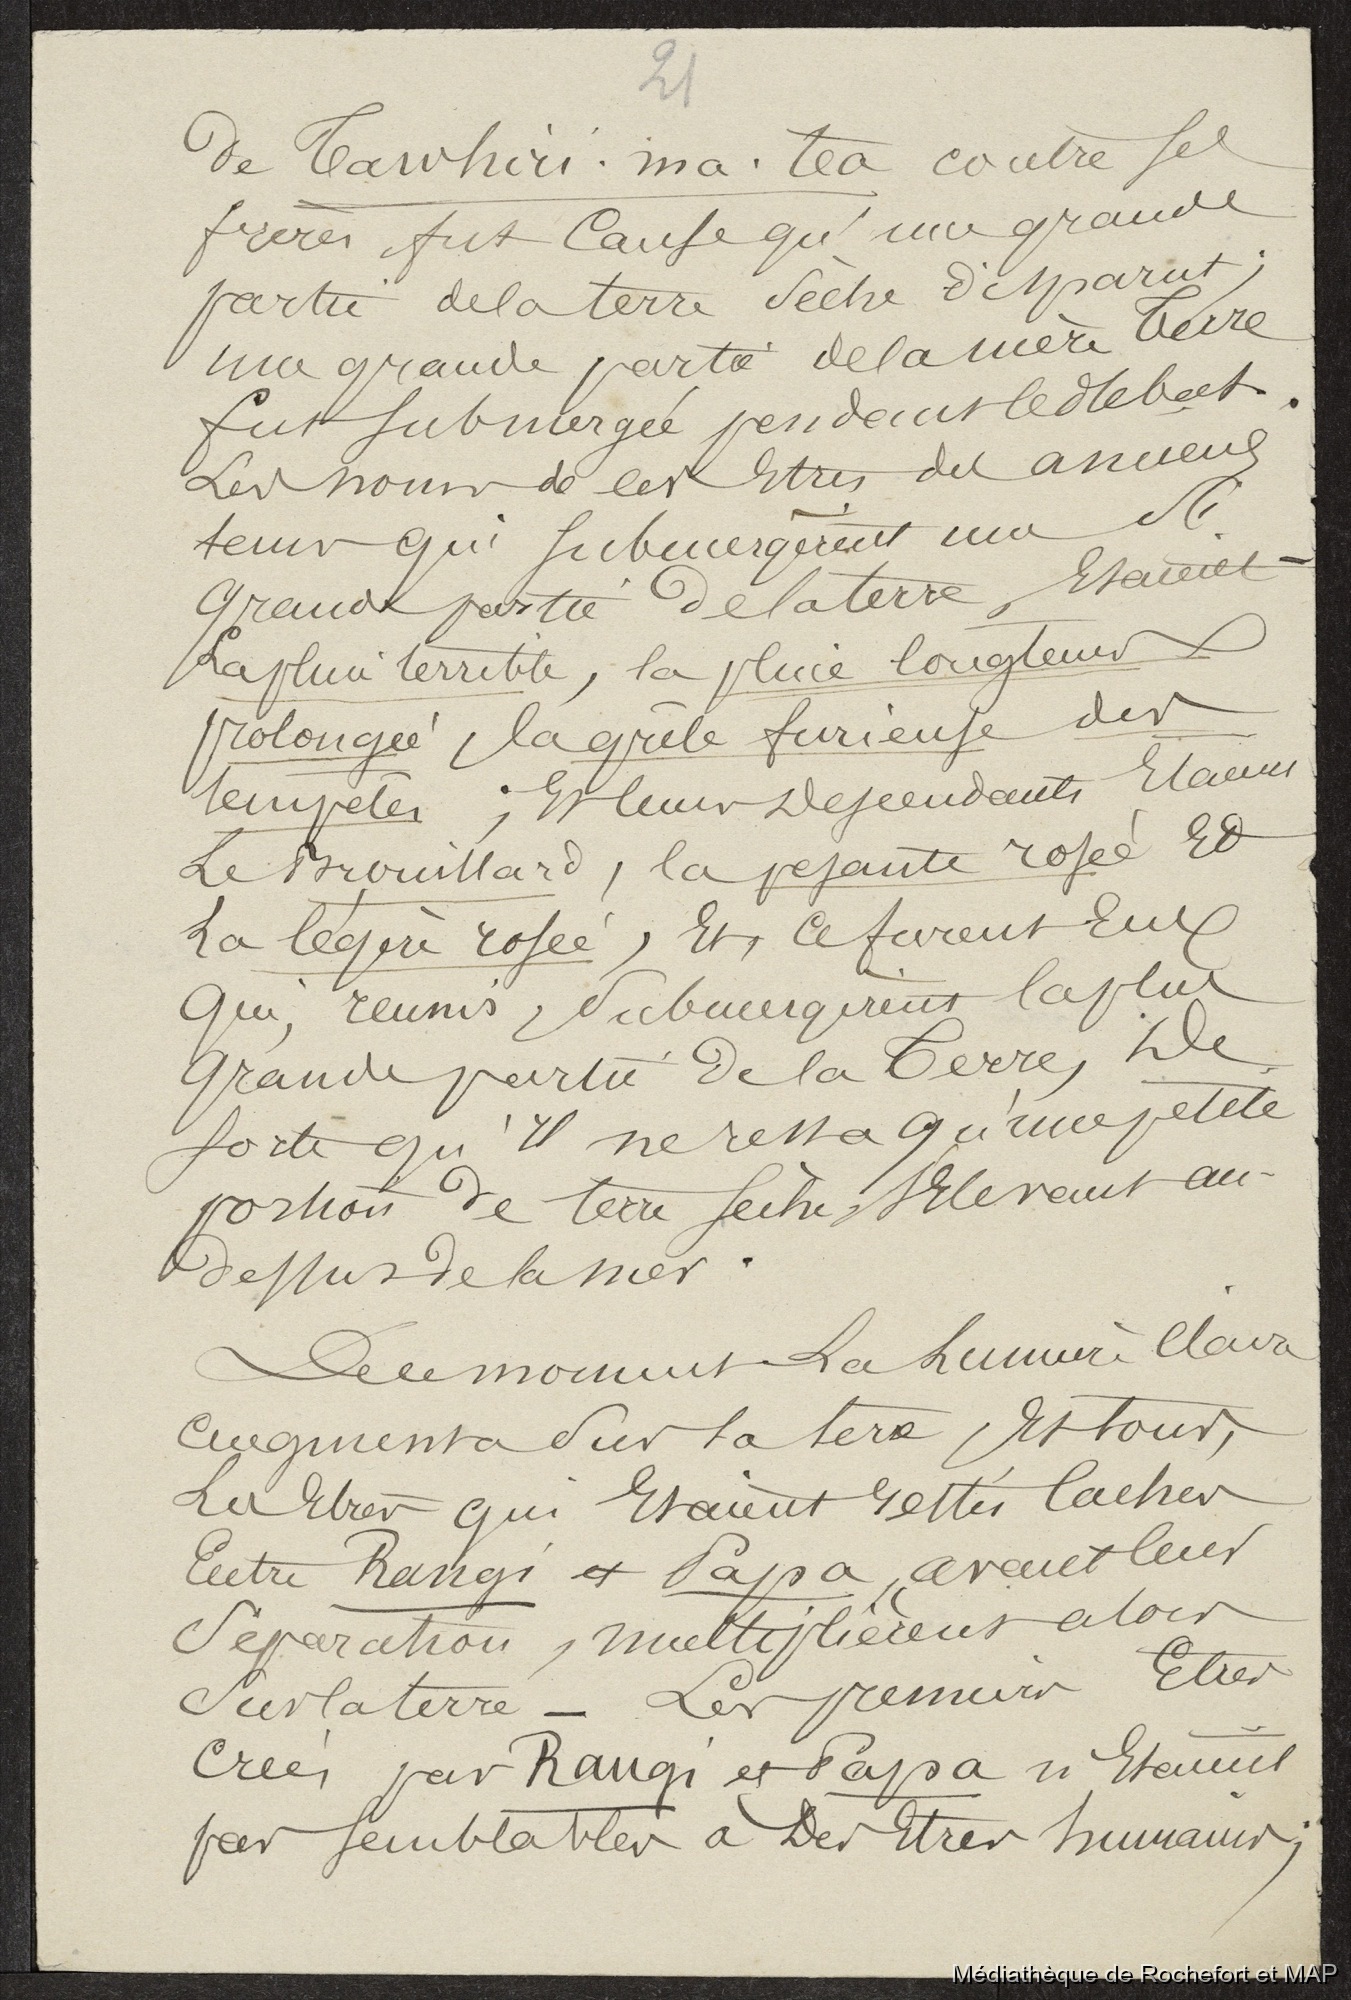 21
de Tawhiri. ma. tea contre ses
frères fut cause qu'une grande
partie de la terre sèche disparut;
une grande partie de la mère Terre
fut submergée pendant le débat.
Les noms de ces Etres des anciens
temps qui submergèrent une si
grande partie de la terre, Etaient
La pluie terrible, la pluie longtemps
prolongée, la grêle furieuse des
tempêtes; Et leurs Descendants Etaient
Le Brouillard, la pesante rosée Et
La légère rosée, Et, ce furent Eux
qui, réunis, submergèrent la plus
grande partie de la Terre, De
sorte qu'il ne resta qu'une petite
portion de terre sèche, s'Elevant au-
dessus de la mer.
De ce moment La Lumière Claire
augmenta sur la terre, Et tous,
Les Etres qui Etaient restés cachés
Entre Rangi et Papa, avant leur
séparation, multiplièrent alors
sur la terre – Les premiers Etres
créés par Rangi et Papa n'Etaient
pas semblables à Des Etres humains;
Médiathèque de Rochefort et MAP